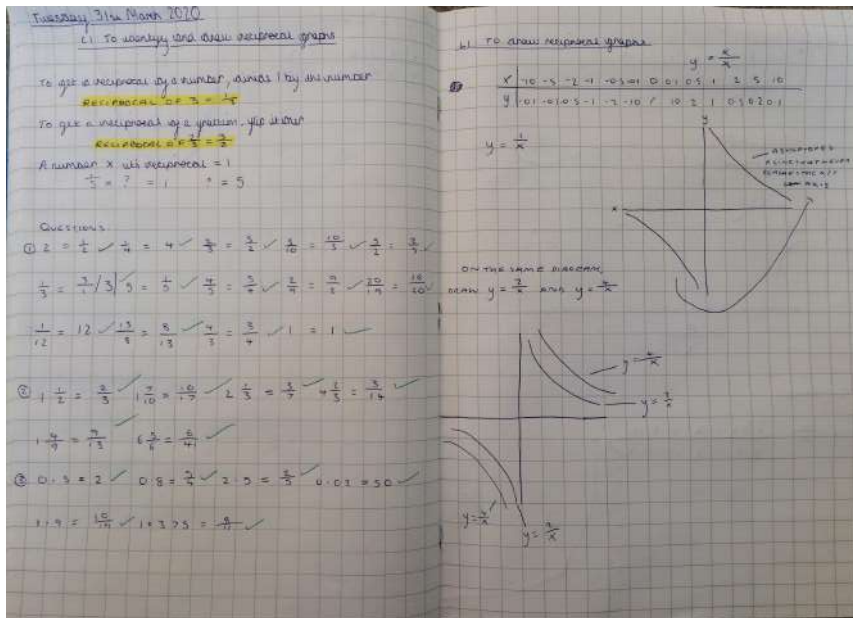 Tuesday 31st March 2020
LI To identify and draw reciprocal graphs
To get a reciprocal of a number, divide 1 by the number
RECIPROCAL OF 3 = 1/3
To get a reciprocal of a fraction, flip it over
RECIPROCAL OF 2/3 = 3/2
A number x its reciprocal = 1
1/5 × ? = 1 ? = 5
QUESTIONS
① 2 = 1/2 ✓ 1/4 = 4 ✓ 2/5 = 5/2 ✓ 3/10 = 10/3 ✓ 5/2 = 2/5 ✓
1/3 = 3/1 / 3 ✓ 5 = 1/5 ✓ 4/5 = 5/4 ✓ 2/9 = 9/2 ✓ 20/19 = 19/20 ✓
1/12 = 12 ✓ 13/8 = 8/13 ✓ 4/3 = 3/4 ✓ 1 = 1 ✓
② 1 1/2 = 2/3 ✓ 1 7/10 = 10/17 ✓ 2 1/3 = 3/7 ✓ 4 2/3 = 3/14 ✓
1 4/9 = 9/13 ✓ 6 5/6 = 6/41 ✓
③ 0.5 = 2 ✓ 0.8 = 5/4 ✓ 2.5 = 2/5 ✓ 0.02 = 50 ✓
1.9 = 10/19 ✓ 1.375 = 8/11 ✓
LI To draw reciprocal graphs
x -10 -5 -2 -1 -0.5 -0.1 0 0.1 0.5 1 2 5 10
y -0.1 -0.2 -0.5 -1 -2 -10 / 10 2 1 0.5 0.2 0.1
y = 1/x
y
x
ON THE SAME DIAGRAM,
DRAW y = 2/x AND y = 4/x
y = 4/x
y = 2/x
y = 4/x
y = 2/x